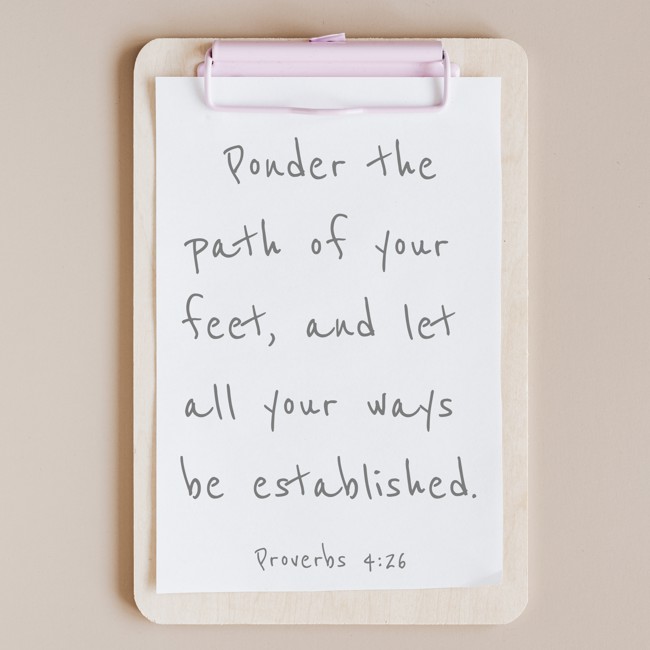 Ponder the
path of your
feet, and let
all your ways
be established.
Proverbs 4:26